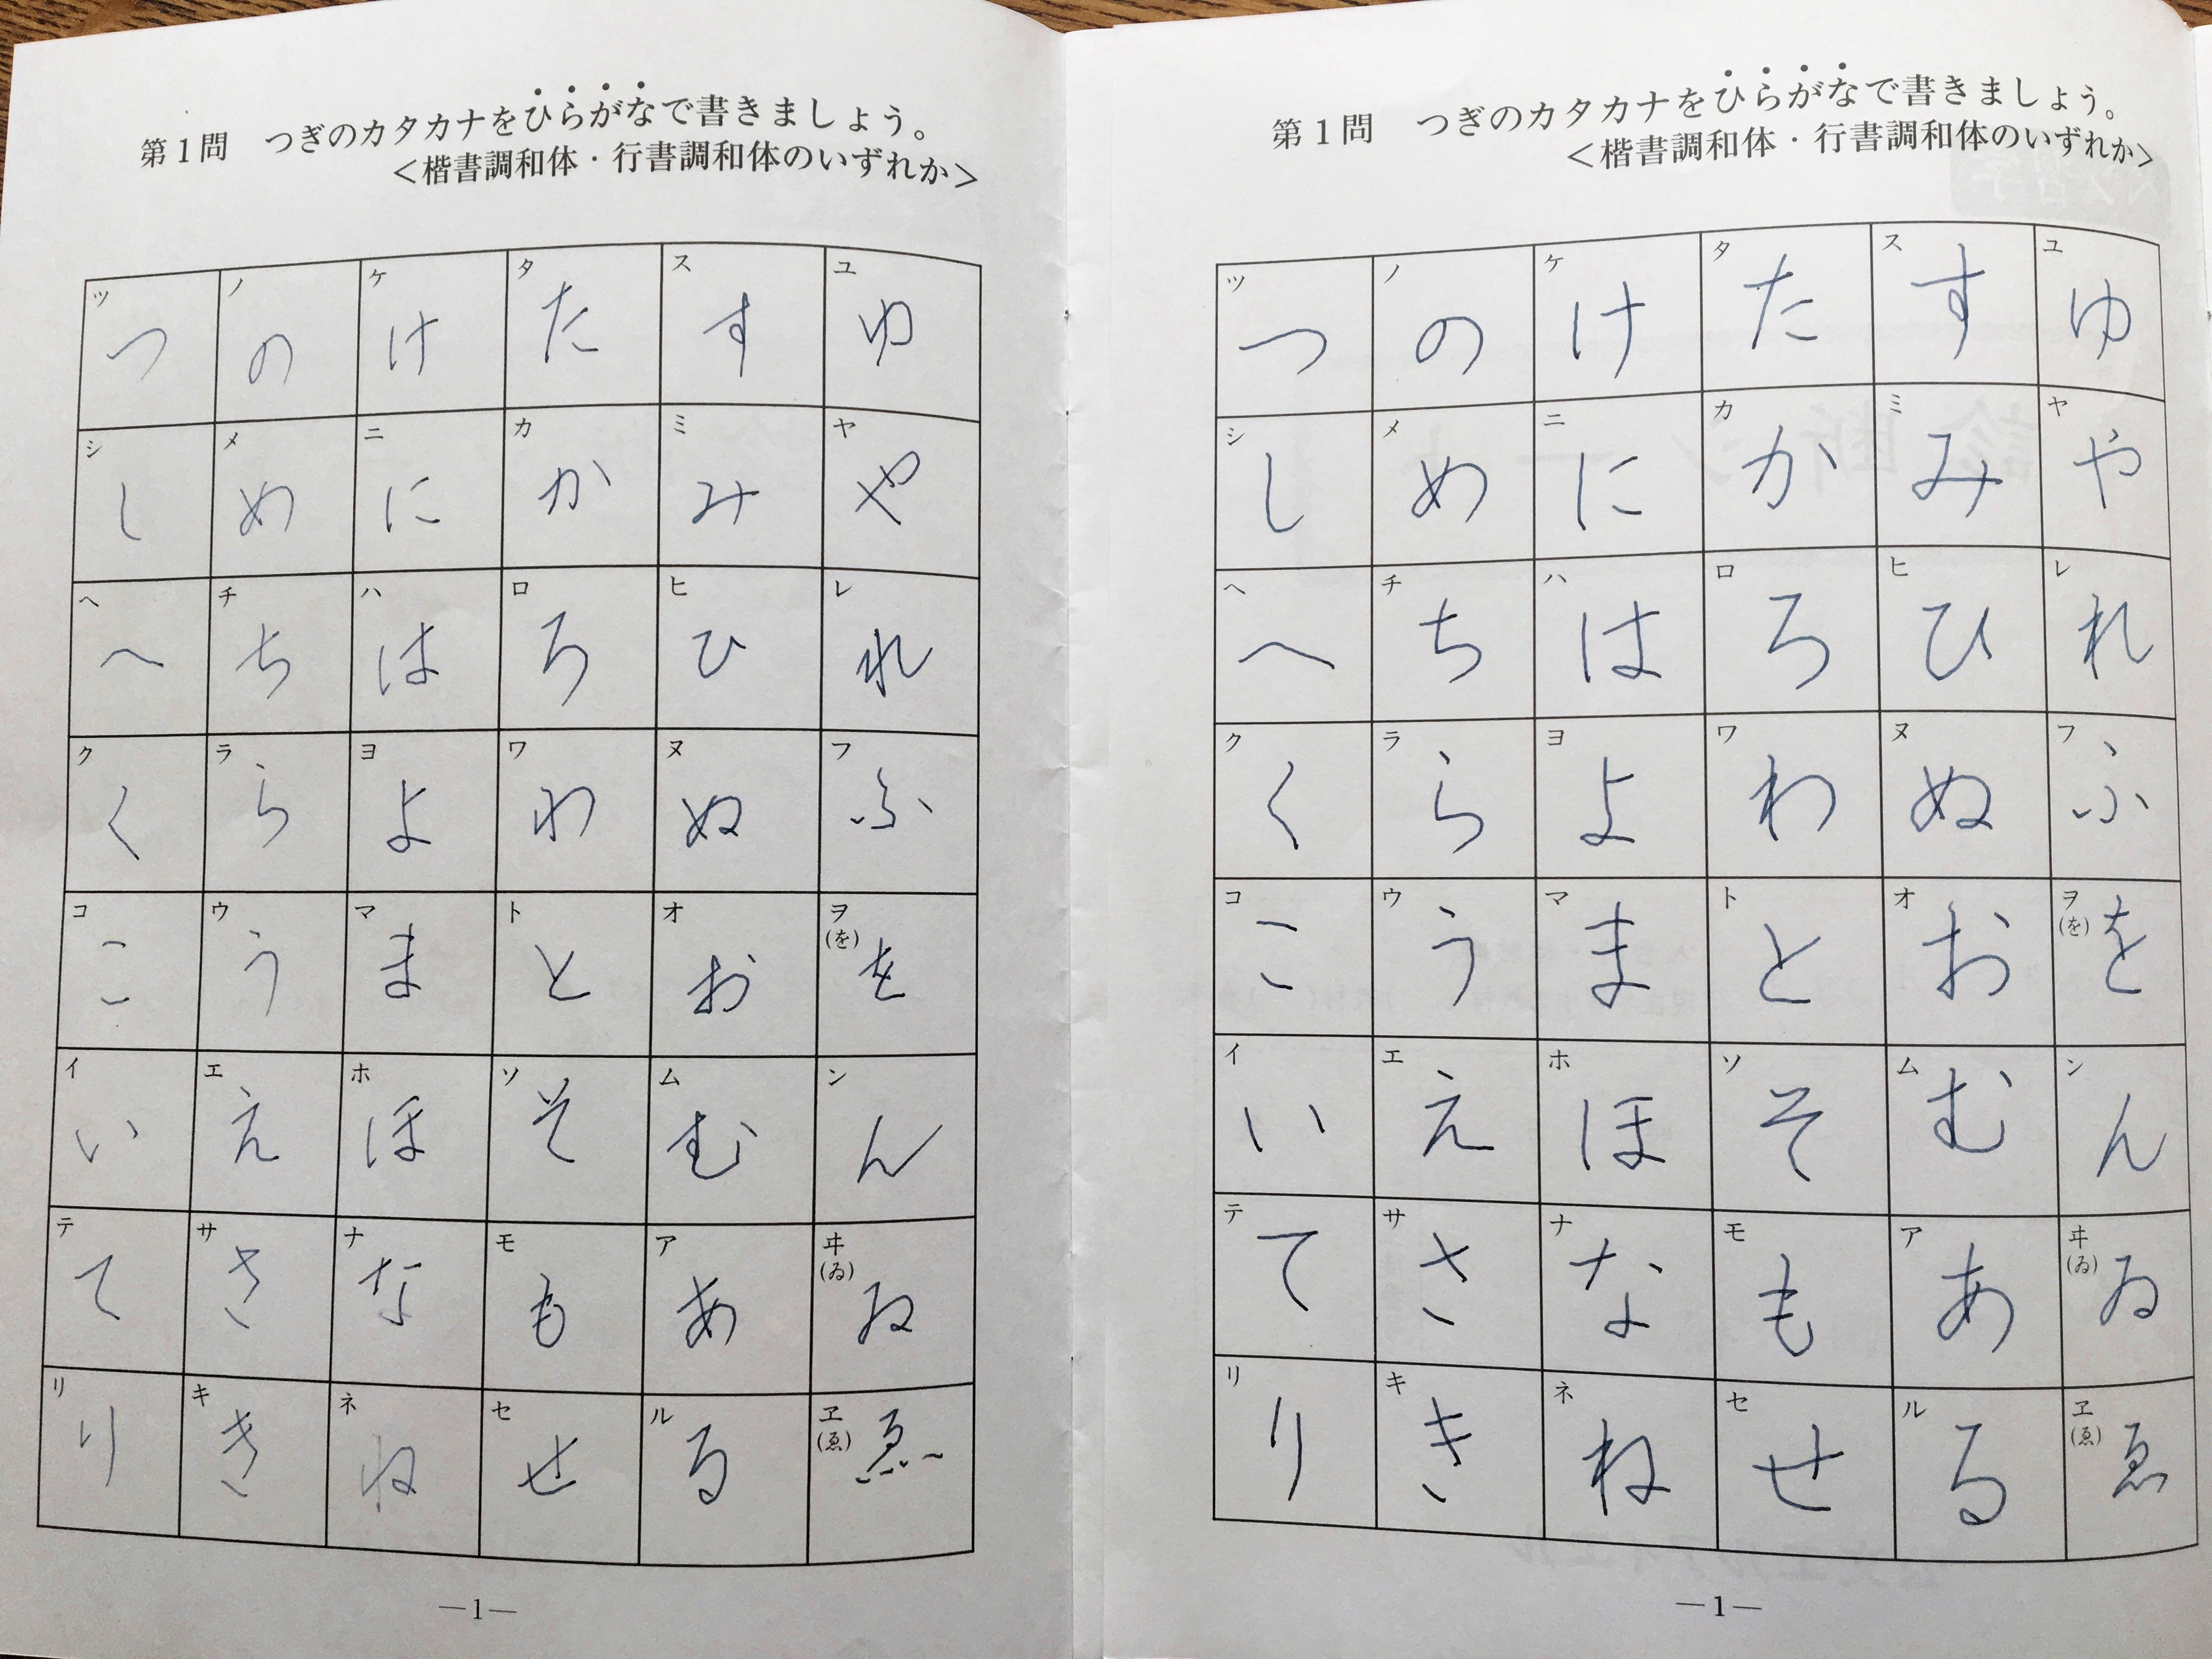 第1問 つぎのカタカナをひらがなで書きましょう。
<楷書調和体・行書調和体のいずれか>
ツ つ ノ の ケ け タ た ス す ユ ゆ
シ し メ め ニ に カ か ミ み ヤ や
ヘ へ チ ち ハ は ロ ろ ヒ ひ レ れ
ク く ラ ら ヨ よ ワ わ ヌ ぬ フ ふ
コ こ ウ う マ ま ト と オ お ヲ(を) を
イ い エ え ホ ほ ソ そ ム む ン ん
テ て サ さ ナ な モ も ア あ ヰ(ゐ) ゐ
リ り キ き ネ ね セ せ ル る ヱ(ゑ) ゑ
—1—
第1問 つぎのカタカナをひらがなで書きましょう。
<楷書調和体・行書調和体のいずれか>
ツ つ ノ の ケ け タ た ス す ユ ゆ
シ し メ め ニ に カ か ミ み ヤ や
ヘ へ チ ち ハ は ロ ろ ヒ ひ レ れ
ク く ラ ら ヨ よ ワ わ ヌ ぬ フ ふ
コ こ ウ う マ ま ト と オ お ヲ(を) を
イ い エ え ホ ほ ソ そ ム む ン ん
テ て サ さ ナ な モ も ア あ ヰ(ゐ) ゐ
リ り キ き ネ ね セ せ ル る ヱ(ゑ) ゑ
—1—